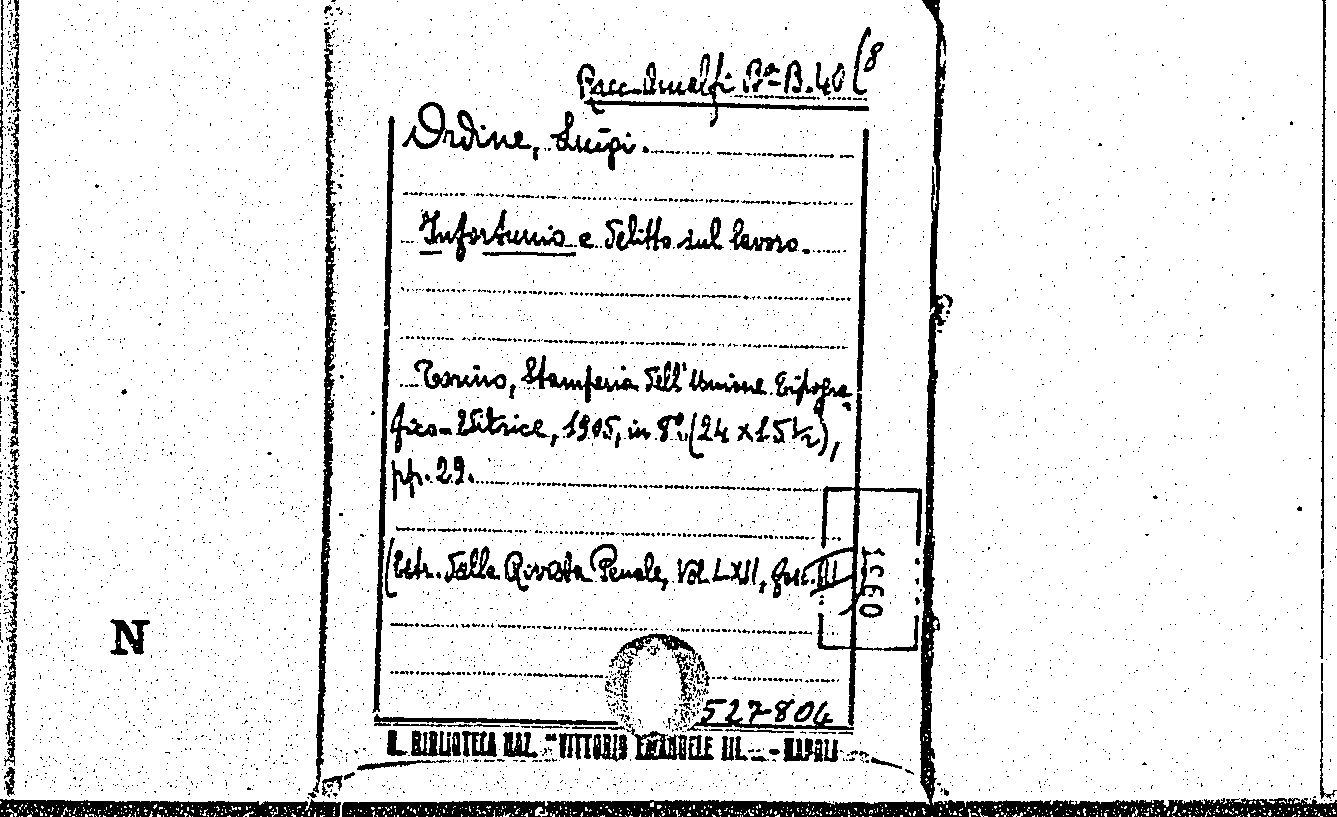 Racc. Amalfi Bª B. 40 (8
Ordine, Luigi.
Infortunio e delitto sul lavoro.
Torino, Stamperia dell'Unione Tipogra-
fico-Editrice, 1905, in 8º. (24 x 15 ½),
pp. 29.
(Estr. dalla Rivista Penale, Vol. LXII, fasc. III
1560
N
527804
R. BIBLIOTECA NAZ. "VITTORIO EMANUELE III" - NAPOLI